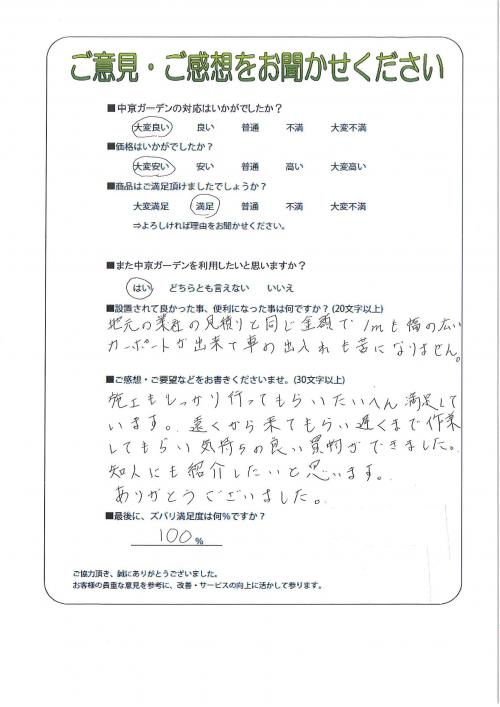 ご意見・ご感想をお聞かせください
■中京ガーデンの対応はいかがでしたか？
大変良い 良い 普通 不満 大変不満
■価格はいかがでしたか？
大変安い 安い 普通 高い 大変高い
■商品はご満足頂けましたでしょうか？
大変満足 満足 普通 不満 大変不満
⇒よろしければ理由をお聞かせください。
■また中京ガーデンを利用したいと思いますか？
はい どちらとも言えない いいえ
■設置されて良かった事、便利になった事は何ですか？(20文字以上)
地元の業社の見積りと同じ金額で 1mも幅の広い
カーポートが出来て車の出入れも苦になりません。
■ご感想・ご要望などをお書きくださいませ。(30文字以上)
施工もしっかり行ってもらいたいへん満足して
います。遠くから来てもらい遅くまで作業
してもらい気持ちの良い買物ができました。
知人にも紹介したいと思います。
ありがとうございました。
■最後に、ズバリ満足度は何％ですか？
100％
ご協力頂き、誠にありがとうございました。
お客様の貴重な意見を参考に、改善・サービスの向上に活かして参ります。